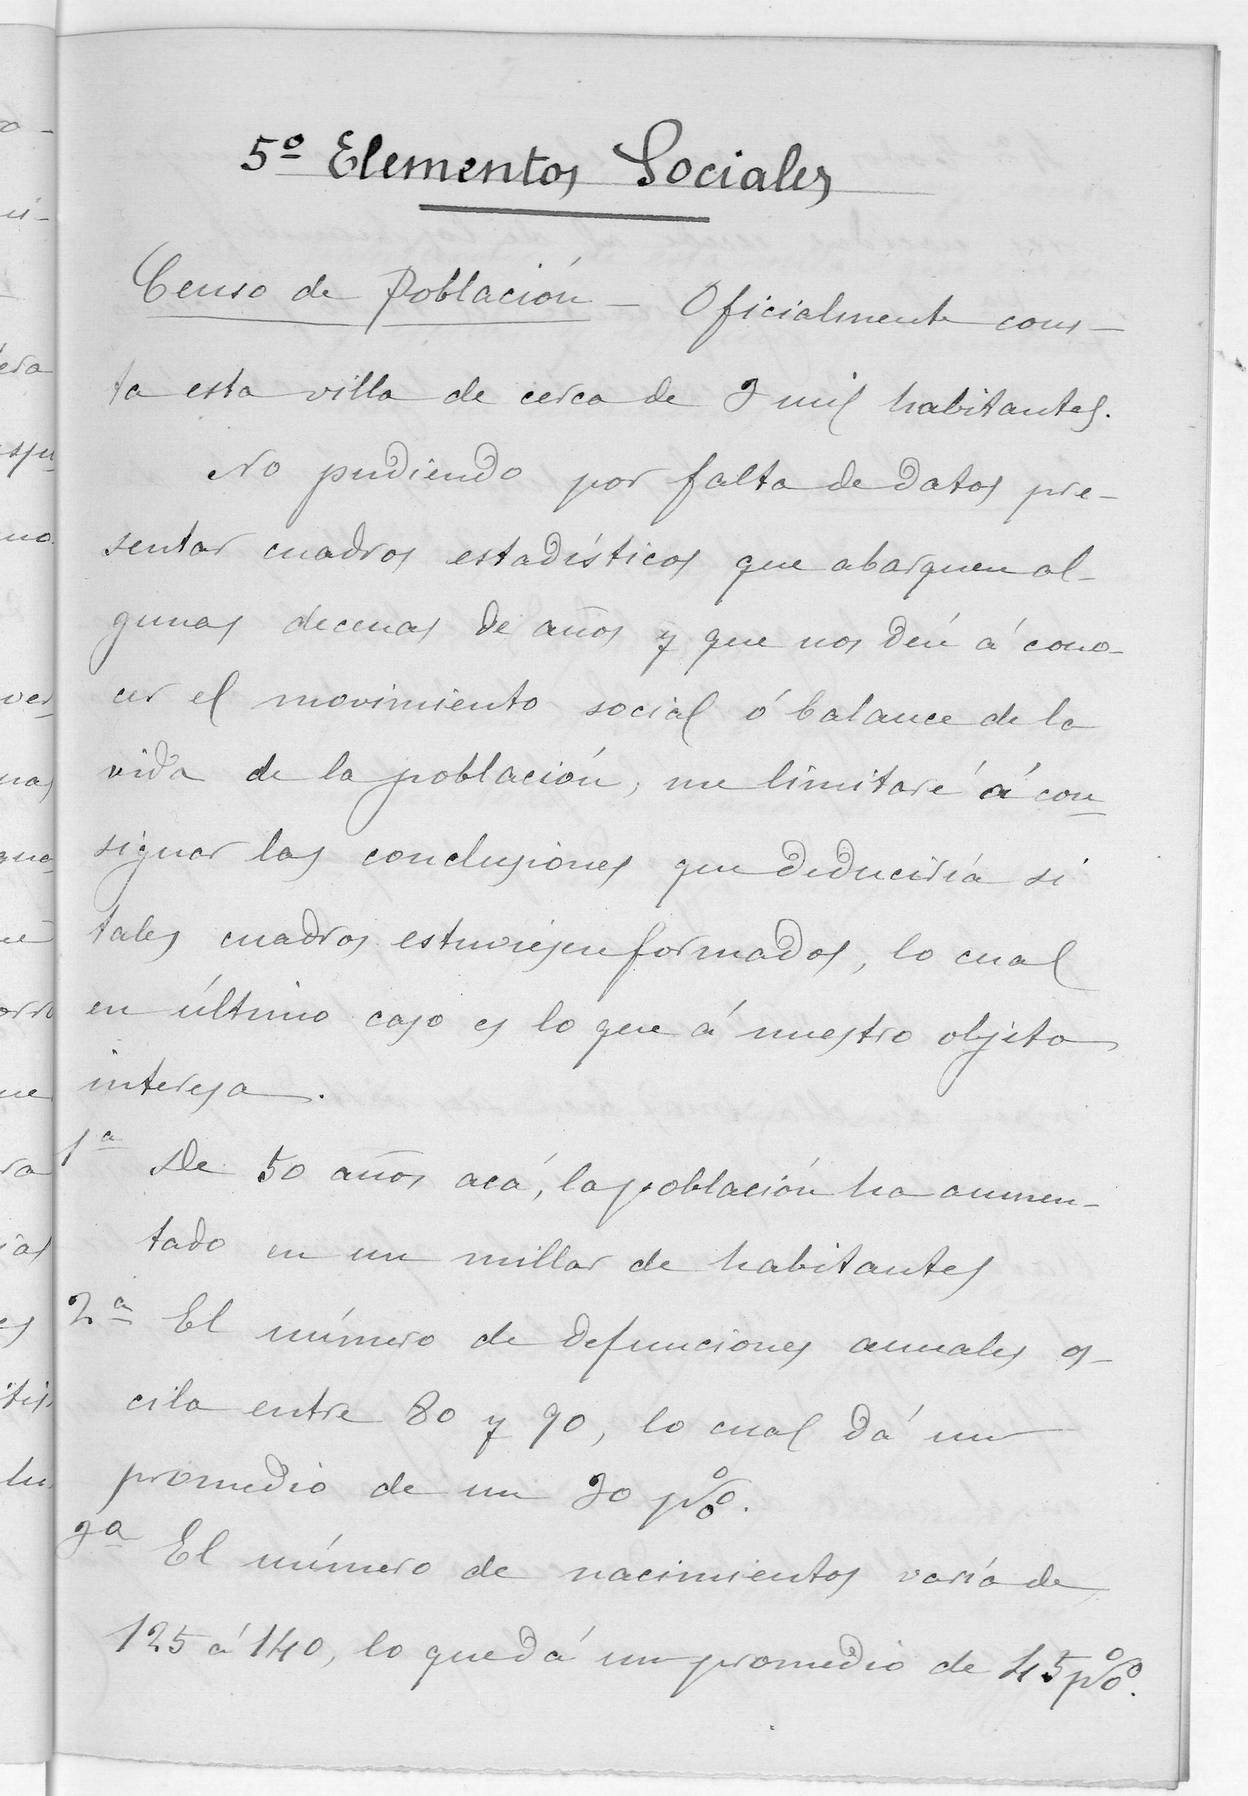 5º Elementos Sociales
Censo de Población — Oficialmente cons-
ta esta villa de cerca de 3 mil habitantes.
No pudiendo por falta de datos pre-
sentar cuadros estadísticos que abarquen al-
gunas decenas de años y que nos den á cono-
cer el movimiento social ó balance de la
vida de la población, me limitaré á con-
signar las conclusiones que deduciría si
tales cuadros estuviesen formados, lo cual
en último caso es lo que á nuestro objeto
interesa.
1ª De 50 años acá, la población ha aumen-
tado en un millar de habitantes
2ª El número de defunciones anuales os-
cila entre 80 y 90, lo cual dá un
promedio de un 30 p‰.
3ª El número de nacimientos varía de
125 á 140, lo que dá un promedio de 45 p‰.